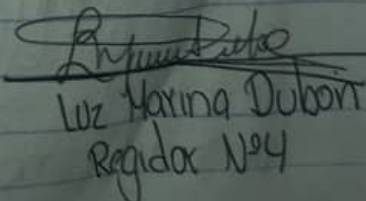 Luz Marina Dubon
Regidor Nº4